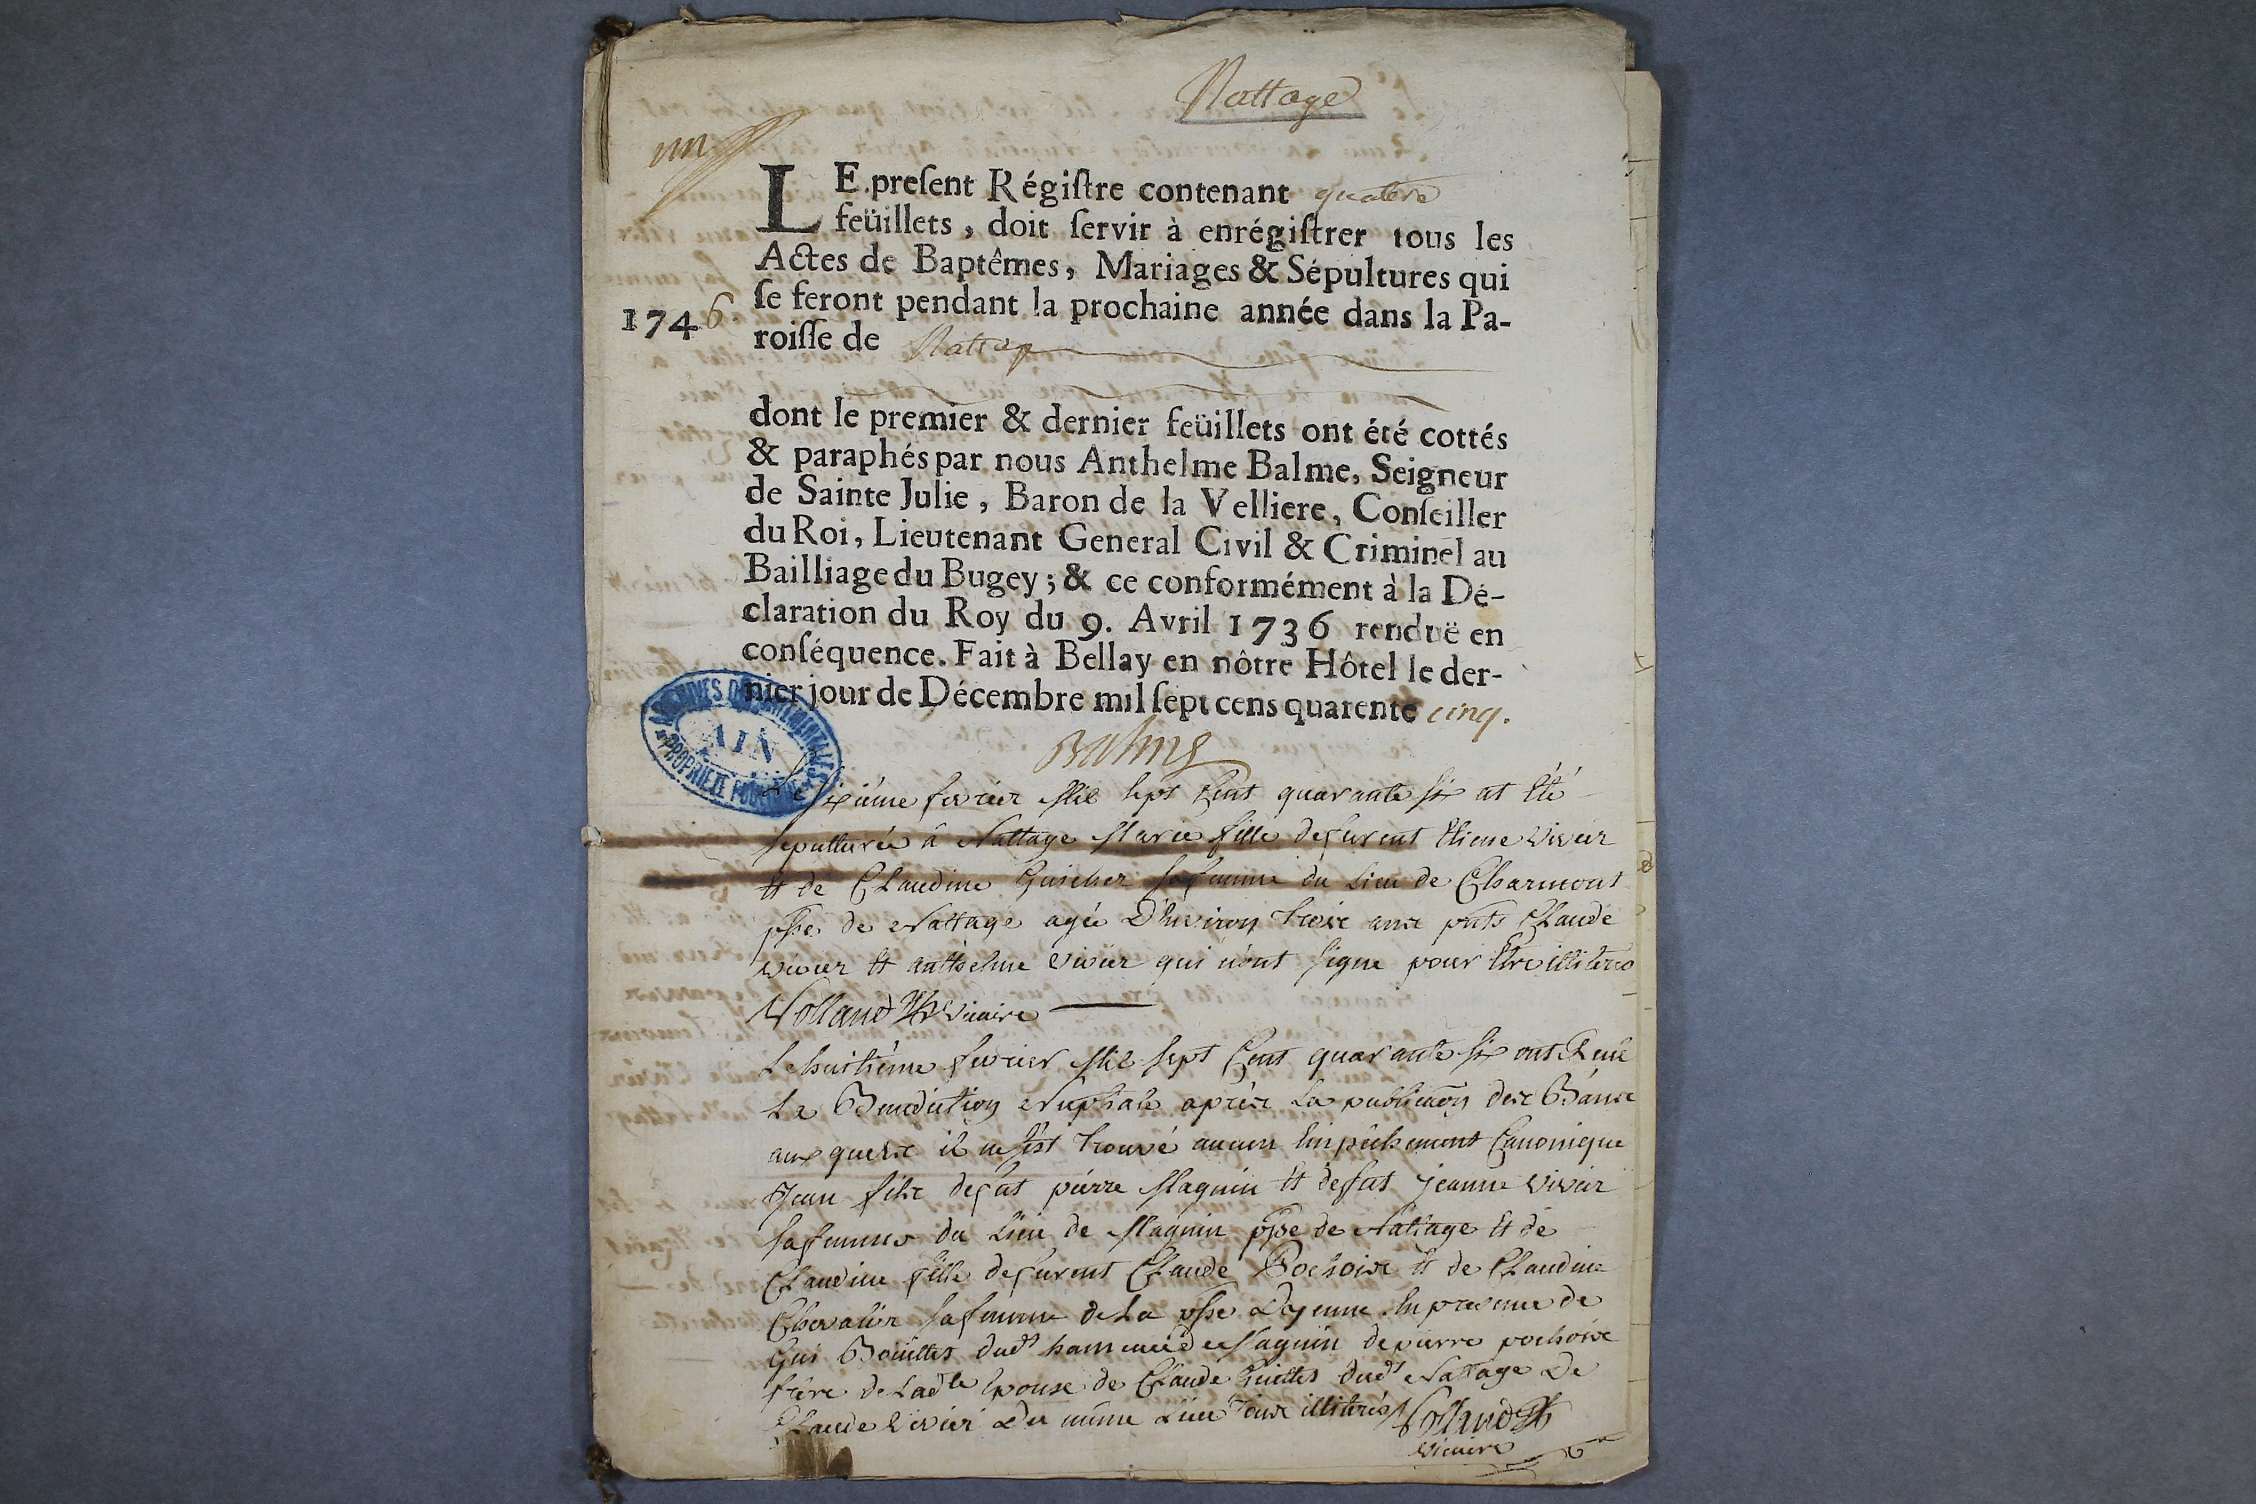 Nattage
un
LE present Régistre contenant quatere
feüillets, doit servir à enrégistrer tous les
Actes de Baptêmes, Mariages & Sépultures qui
se feront pendant la prochaine année dans la Pa-
1746
roisse de Nattage
dont le premier & dernier feüillets ont été cottés
& paraphés par nous Anthelme Balme, Seigneur
de Sainte Julie, Baron de la Velliere, Conseiller
du Roi, Lieutenant General Civil & Criminel au
Bailliage du Bugey; & ce conformément à la Dé-
claration du Roy du 9. Avril 1736 renduë en
conséquence. Fait à Bellay en nôtre Hôtel le der-
nier jour de Décembre mil sept cens quarente cinq.
ARCHIVES DÉPARTEMENTALES
AIN
PROPRIÉTÉ PUBLIQUE
Balme
Le sixième fevrier Mil sept Cent quarante six at Eté
sepulturée à Nattage Marie fille de furent Etiene vivier
Et de Claudine Guicher sa femme du Lieu de Charmont
psse de Nattage agée D'environ treize ans pnts Claude
vivier Et anthelme vivier qui n'ont signe pour Etre illiteres
Volland Ptre vicaire
Le huitième fevrier Mil sept Cent quarante six ont Reçu
La Benediction Nuptiale après La publication des Bans
aux quels il ne s'est trouvé aucun Empêchement Canonique
Jean fils de fut pierre Magnin Et deffut jeanne vivier
sa femme du Lieu de Magnin psse de Nattage Et de
Claudine fille de furent Claude Pochoix Et de Claudine
Chevalier sa femme de La psse Deyenne. En presence de
Gui Boüillet dudt hammeau de Magnin de pierre pochoix
frère de Ladte Epouse de Claude Guillet dudt Nattage De
Claude vivier Du même Lieu tous illiterés Volland Ptre
vicaire